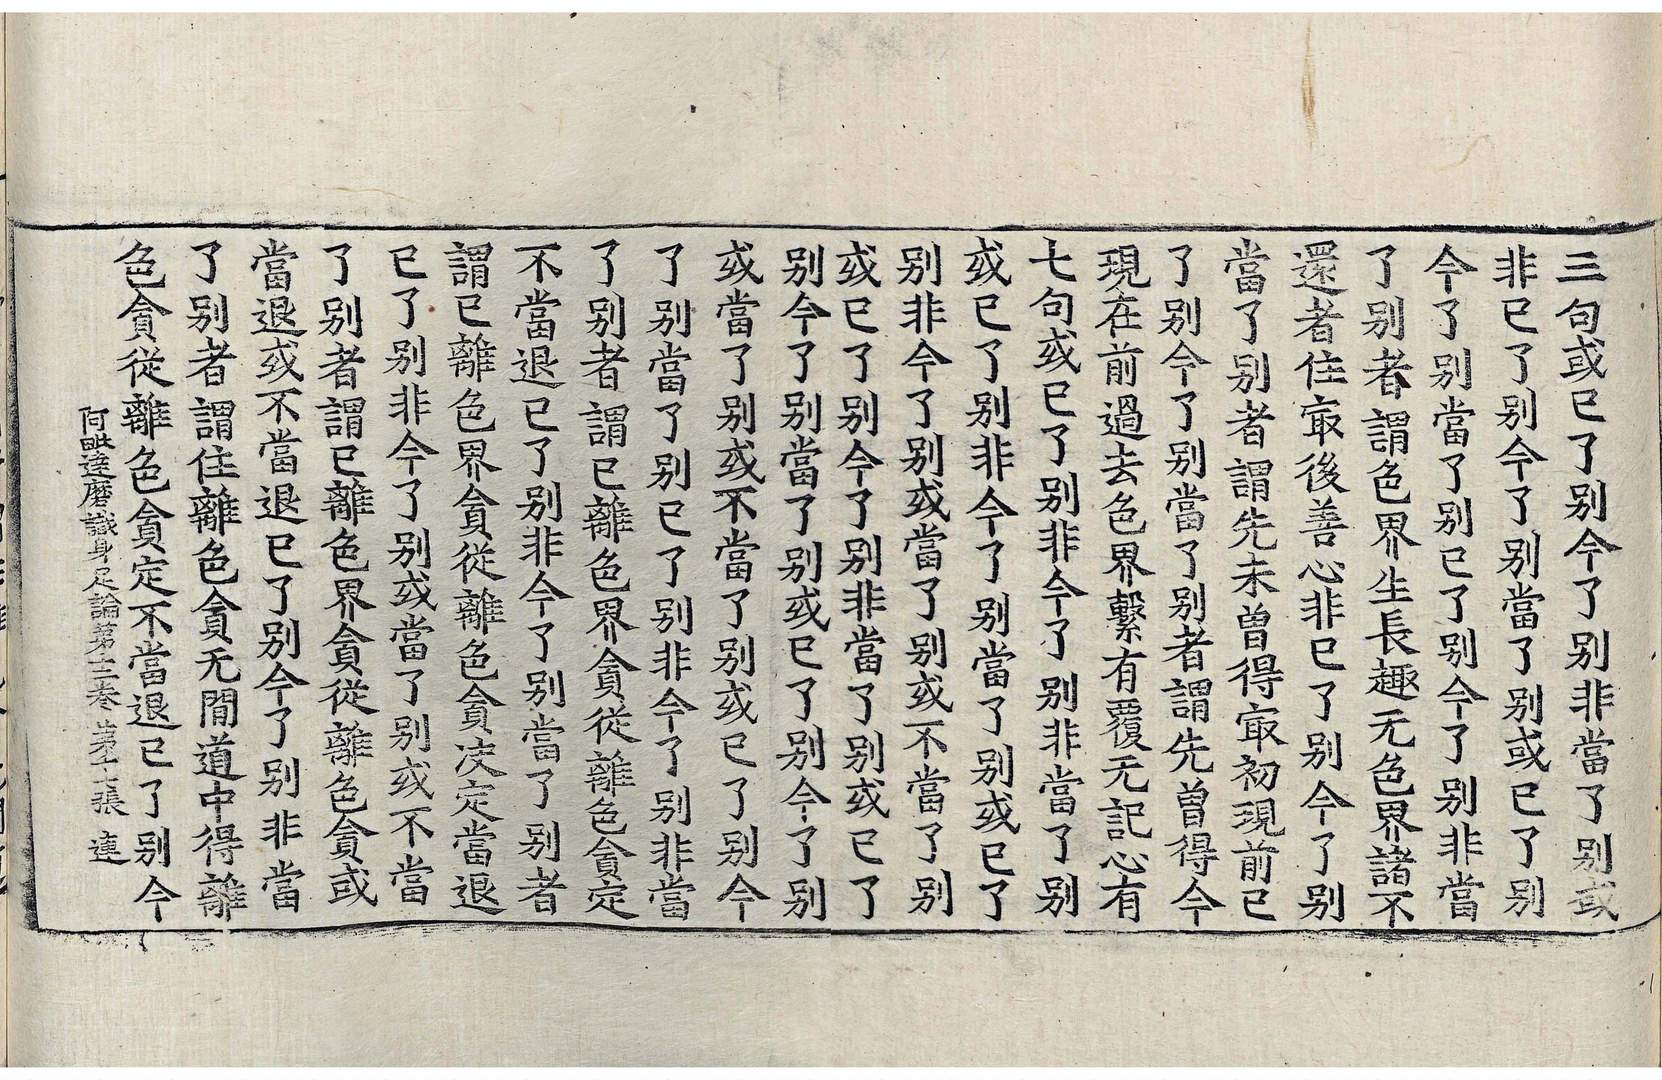 三句或已了别今了别非當了别或
非已了别今了别當了别或已了别
今了别當了别已了别今了别非當
了别者謂色界生長趣无色界諸不
還者住㝡後善心非已了别今了别
當了别者謂先未曽得㝡初現前已
了别今了别當了别者謂先曽得今
現在前過去色界繫有覆无記心有
七句或已了别非今了别非當了别
或已了别非今了别當了别或已了
别非今了别或當了别或不當了别
或已了别今了别非當了别或已了
别今了别當了别或已了别今了别
或當了别或不當了别或已了别今
了别當了别已了别非今了别非當
了别者謂已離色界貪從離色貪定
不當退已了别非今了别當了别者
謂已離色界貪從離色貪决定當退
已了别非今了别或當了别或不當
了别者謂已離色界貪從離色貪或
當退或不當退已了别今了别非當
了别者謂住離色貪无間道中得離
色貪從離色貪定不當退已了别今
阿毗達磨識身足論第 卷 第 張